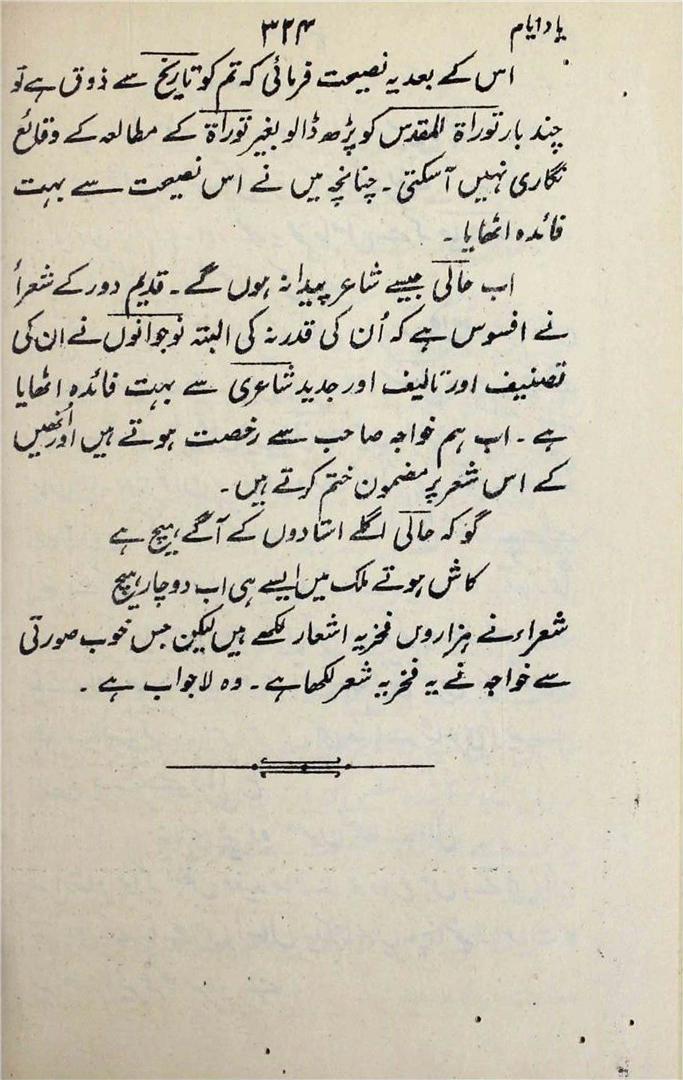 یاد ایام
۳۲۴
اس کے بعد یہ نصیحت فرمائی کہ تم کو تاریخ سے ذوق ہے تو
چند بار توراۃ المقدس کو پڑھ ڈالو بغیر توراۃ کے مطالعہ کے وقائع
نگاری نہیں آسکتی ۔ چنانچہ میں نے اس نصیحت سے بہت
فائدہ اٹھایا ۔
اب حالی جیسے شاعر پیدا نہ ہوں گے ۔ قدیم دور کے شعرأ
نے افسوس ہے کہ اُن کی قدر نہ کی البتہ نوجوانوں نے ان کی
تصنیف اور تالیف اور جدید شاعری سے بہت فائدہ اٹھایا
ہے ۔ اب ہم خواجہ صاحب سے رخصت ہوتے ہیں اور اُنھیں
کے اس شعر پر مضمون ختم کرتے ہیں ۔
گو کہ حالی اگلے استادوں کے آگے ہیچ ہے
کاش ہوتے ملک میں ایسے ہی اب دوچار ہیچ
شعراء نے ہزاروں فخریہ اشعار لکھے ہیں لیکن جس خوب صورتی
سے خواجہ نے یہ فخریہ شعر لکھا ہے ۔ وہ لاجواب ہے ۔